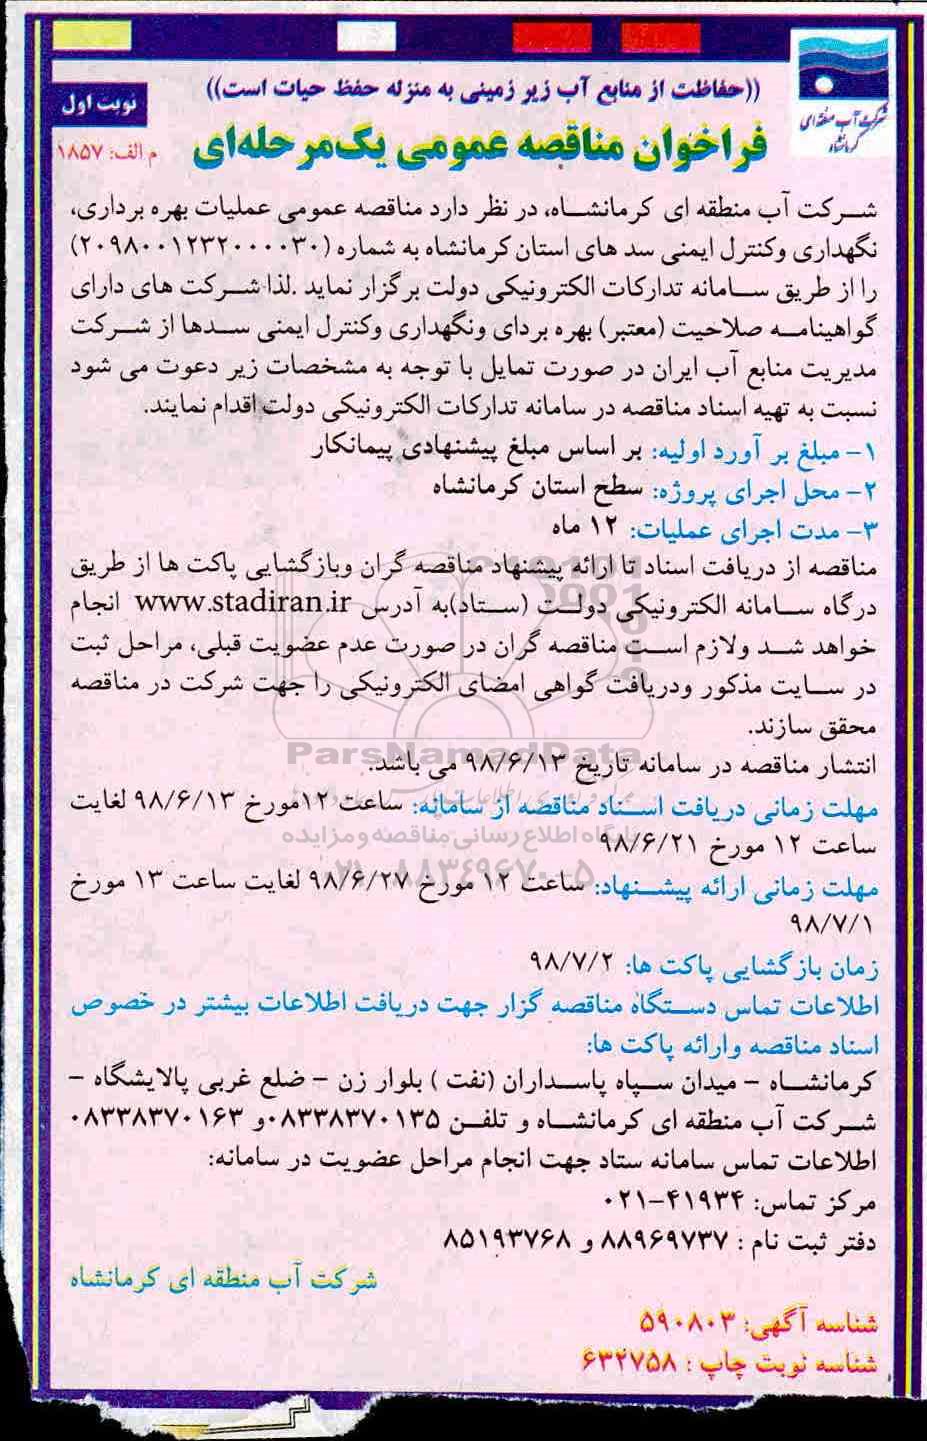 ((حفاظت از منابع آب زیر زمینی به منزله حفظ حیات است))
شرکت آب منطقه‌ای
کرمانشاه
نوبت اول
فراخوان مناقصه عمومی یک‌مرحله‌ای
م الف: ۱۸۵۷
شرکت آب منطقه ای کرمانشاه، در نظر دارد مناقصه عمومی عملیات بهره برداری،
نگهداری وکنترل ایمنی سد های استان کرمانشاه به شماره (۲۰۹۸۰۰۱۲۳۲۰۰۰۰۳۰)
را از طریق سامانه تدارکات الکترونیکی دولت برگزار نماید .لذا شرکت های دارای
گواهینامه صلاحیت (معتبر) بهره بردای ونگهداری وکنترل ایمنی سدها از شرکت
مدیریت منابع آب ایران در صورت تمایل با توجه به مشخصات زیر دعوت می شود
نسبت به تهیه اسناد مناقصه در سامانه تدارکات الکترونیکی دولت اقدام نمایند.
۱- مبلغ بر آورد اولیه: بر اساس مبلغ پیشنهادی پیمانکار
۲- محل اجرای پروژه: سطح استان کرمانشاه
۳- مدت اجرای عملیات: ۱۲ ماه
مناقصه از دریافت اسناد تا ارائه پیشنهاد مناقصه گران وبازگشایی پاکت ها از طریق
درگاه سامانه الکترونیکی دولت (ستاد)به آدرس www.stadiran.ir انجام
خواهد شد ولازم است مناقصه گران در صورت عدم عضویت قبلی، مراحل ثبت
در سایت مذکور ودریافت گواهی امضای الکترونیکی را جهت شرکت در مناقصه
محقق سازند.
ParsNamadData
انتشار مناقصه در سامانه تاریخ ۹۸/۶/۱۳ می باشد.
مهلت زمانی دریافت اسناد مناقصه از سامانه: ساعت ۱۲مورخ ۹۸/۶/۱۳ لغایت
پایگاه اطلاع رسانی مناقصه و مزایده
ساعت ۱۲ مورخ ۹۸/۶/۲۱
۰۲۱-۸۸۳۴۹۶۷۰-۵
مهلت زمانی ارائه پیشنهاد: ساعت ۱۲ مورخ ۹۸/۶/۲۷ لغایت ساعت ۱۳ مورخ
۹۸/۷/۱
زمان بازگشایی پاکت ها: ۹۸/۷/۲
اطلاعات تماس دستگاه مناقصه گزار جهت دریافت اطلاعات بیشتر در خصوص
اسناد مناقصه وارائه پاکت ها:
کرمانشاه - میدان سپاه پاسداران (نفت ) بلوار زن - ضلع غربی پالایشگاه -
شرکت آب منطقه ای کرمانشاه و تلفن ۰۸۳۳۸۳۷۰۱۳۵و ۰۸۳۳۸۳۷۰۱۶۳
اطلاعات تماس سامانه ستاد جهت انجام مراحل عضویت در سامانه:
مرکز تماس: ۴۱۹۳۴-۰۲۱
دفتر ثبت نام : ۸۸۹۶۹۷۳۷ و ۸۵۱۹۳۷۶۸
شرکت آب منطقه ای کرمانشاه
شناسه آگهی: ۵۹۰۸۰۳
شناسه نوبت چاپ : ۶۳۲۷۵۸